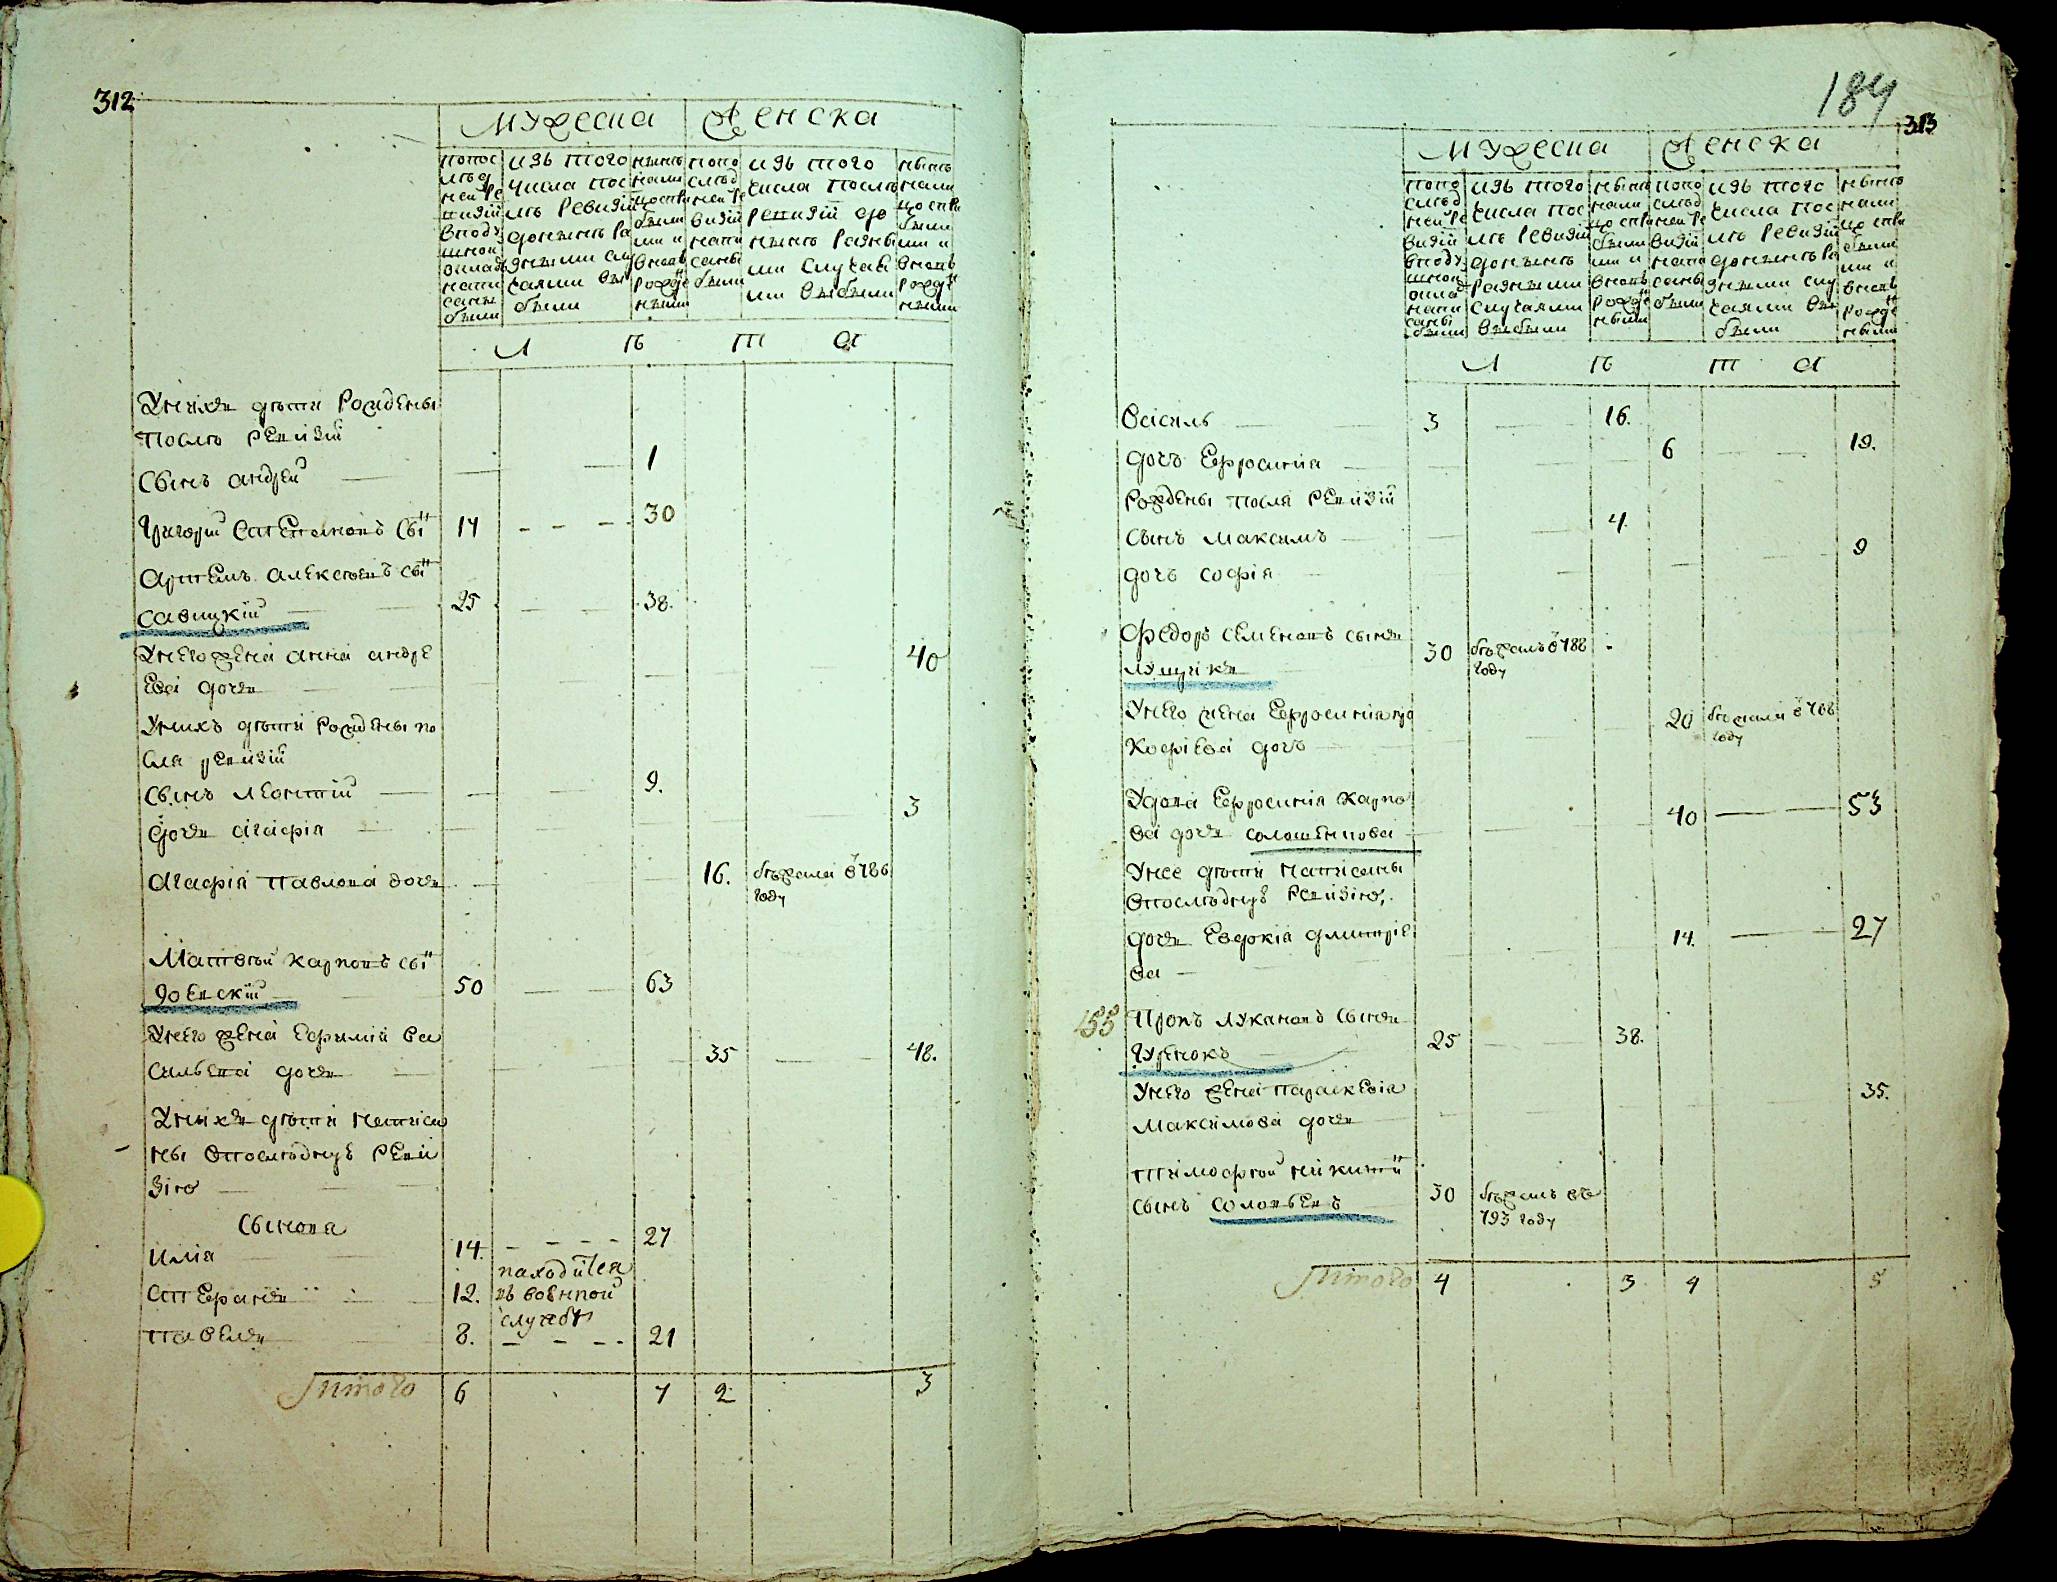 312
мужеска женска
попос
лѣд
ней ре
визіи
вподу
шной
оклад
напи
саны
были
изъ того
числа пос
лѣ ревизіи
донынѣ ра
зными слу
чаями вы
были
нынѣ
нали
цо спри
были
ми и
вновь
рожде
ными
попо
слѣд
ней ре
визіи
напи
саны
были
изъ того
числа послѣ
ревизіи до
нынѣ разны
ми случая
ми выбыли
нынѣ
нали
цо спри
были
ми и
вновь
рожде
ными
л ѣ т а
Унихъ дѣти рождены
послѣ ревизіи
Сынъ андрей 1
Григорій Степановъ сынъ 17 30
Артемъ алексѣевъ сынъ
савицкій 25 38.
Унего жена анна андре
ева дочь 40
Унихъ дѣти рождены по
сля ревизіи
Сынъ леонтій 9.
дочь агафія 3
Агафія павлова дочь 16. бѣжала в 786
году
Матвѣй карповъ сынъ
доевскій 50 63
Унего жена ефимія ва
сильева дочь 35 48.
Унихъ дѣти написа
ны впослѣднуѣ реви
зію
Сынова
илія 14. 27
Стефанъ 12. находится
въ военной
службѣ
павелъ 8. 21
Итого 6 7 2 3
184
313
мужеска женска
попо
слѣд
ней ре
визіи
вподу
шной
оклад
напи
саны
были
изъ того
числа пос
лѣ ревизіи
донынѣ
разными
случаями
выбыли
нынѣ
нали
цо спри
были
ми и
вновь
рожде
ными
попо
слѣд
ней ре
визіи
напи
саны
были
изъ того
числа пос
лѣ ревизіи
донынѣ ра
зными слу
чаями вы
были
нынѣ
нали
цо спри
были
ми и
вновь
рожде
ными
л ѣ т а
Василь 3 16.
дочь Ефросинія 6 19.
рождены посля ревизіи
Сынъ максимъ 4.
дочь софія 9
Федоръ семеновъ сынъ
лущикъ 30 бѣжалъ в 788
году
Унего жена Ефросинія про
кофіева дочь 20 бѣжала в 788
году
Удова Ефросинія карпо
ва дочь солошенкова 40 53
Унее дѣти написаны
впослѣднуѣ ревизію,
дочь Евдокія дмитріе
ва 14. 27
155 Прокъ лукановъ сынъ
гуренокъ 25 38.
Унего жена параскевія
максимова дочь 35.
тимофѣй никитинъ
сынъ соловьевъ 30 бѣжалъ въ
793 году
Итого 4 3 4 5